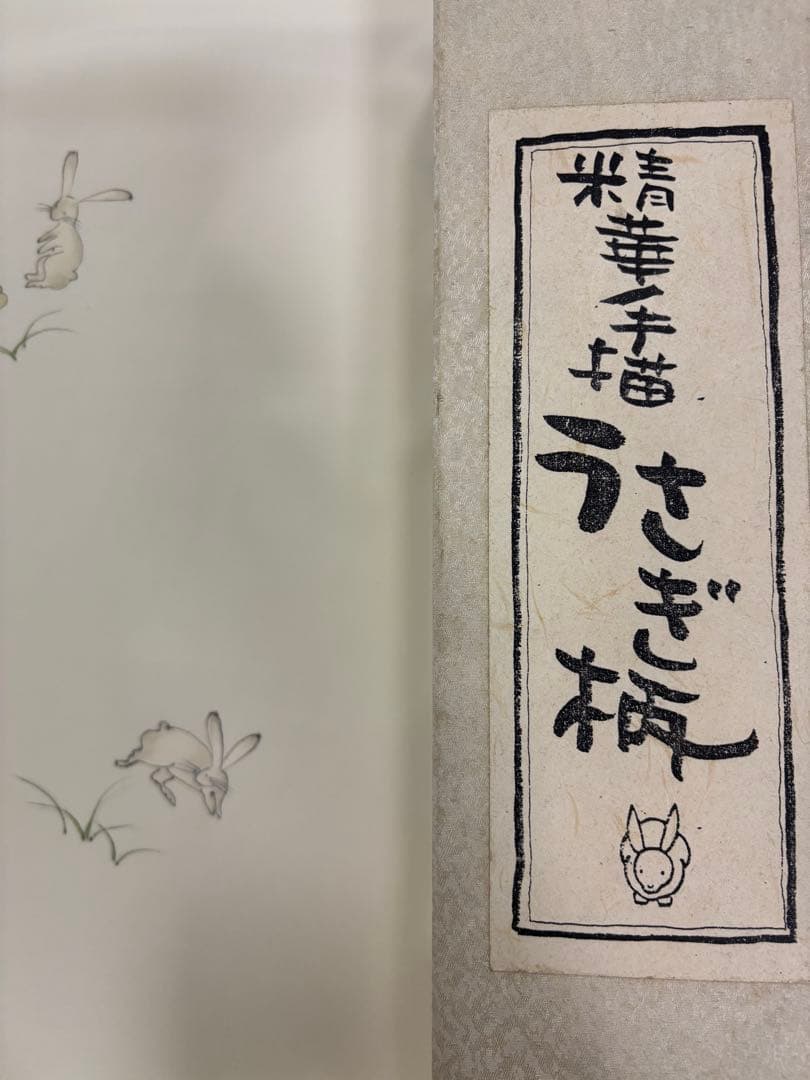 精華手描
うさぎ柄